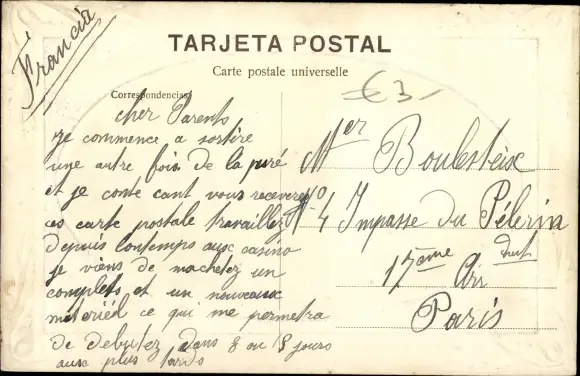 Francia
TARJETA POSTAL
Carte postale universelle
€3-
Correspondencias
cher Parents
je commence a sortire
une autre fois de la puré
et je conte cant vous receverez
ces carte postale travaillez
depuis lontemps aux casino
je viens de machetez un
complets et un nouveaux
materiéd ce qui me permetra
de debutez dans 8 ou 15 jours
aux plus tards
Mer Boulesteix
No 4 Impasse du Pélerin
17eme Arr
Paris